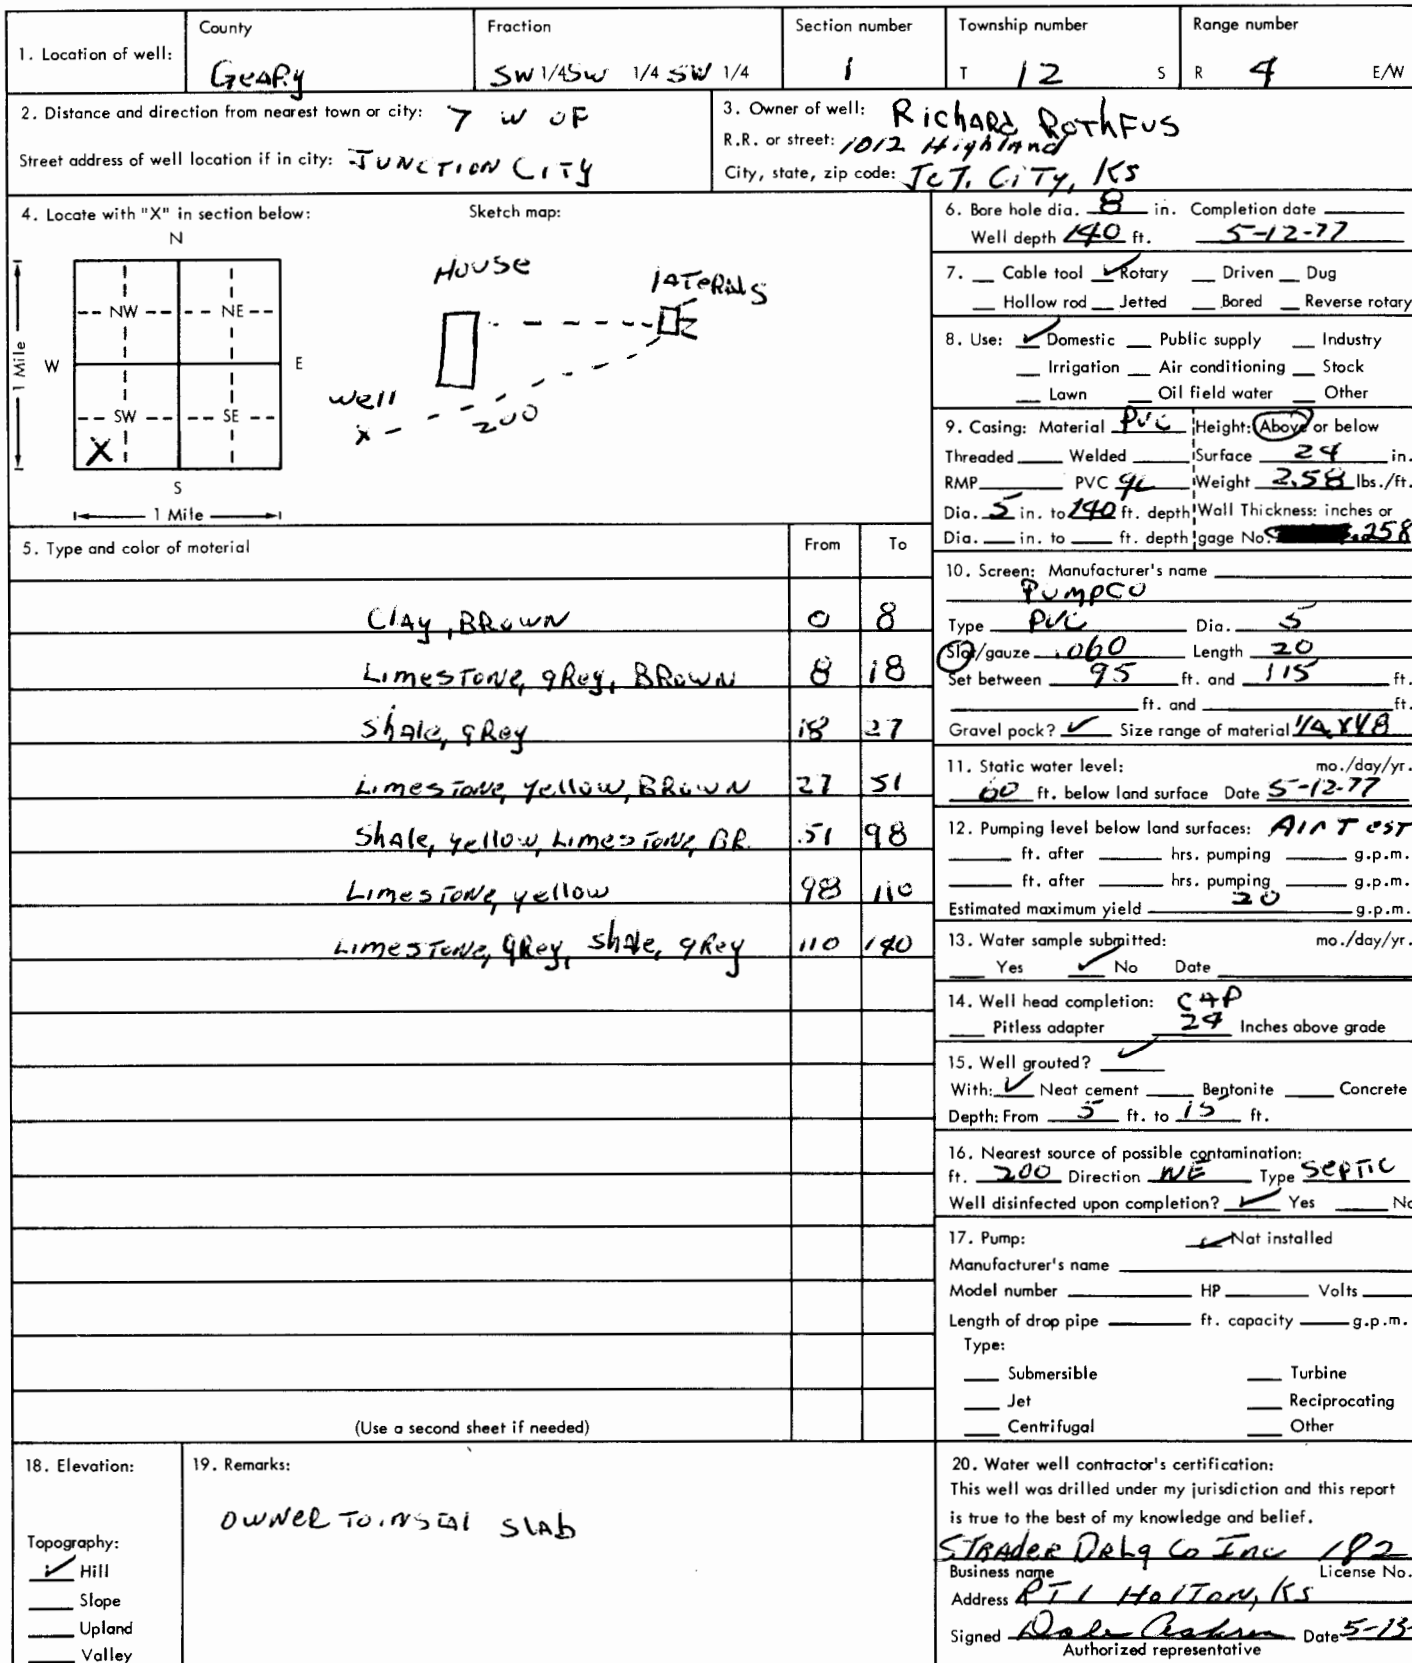 County Fraction Section number Township number Range number
1. Location of well: Geary SW 1/4 SW 1/4 SW 1/4 1 T 12 S R 4 E/W
2. Distance and direction from nearest town or city: 7 W OF
Street address of well location if in city: JUNCTION CITY
3. Owner of well: Richard Rothfus
R.R. or street: 1012 Highland
City, state, zip code: JCT. CITY, KS
4. Locate with "X" in section below: Sketch map:
N
NW NE
W E
SW SE
X
S
1 Mile
1 Mile
House
laterals
well
x
200
5. Type and color of material From To
Clay, BROWN 0 8
Limestone, grey, BROWN 8 18
Shale, grey 18 27
Limestone, yellow, BROWN 27 51
Shale, yellow, Limestone, BR. 51 98
Limestone, yellow 98 110
Limestone, grey, shale, grey 110 140
(Use a second sheet if needed)
6. Bore hole dia. 8 in. Completion date
Well depth 140 ft. 5-12-77
7. Cable tool ✓ Rotary Driven Dug
Hollow rod Jetted Bored Reverse rotary
8. Use: ✓ Domestic Public supply Industry
Irrigation Air conditioning Stock
Lawn Oil field water Other
9. Casing: Material PVC Height: Above or below
Threaded Welded Surface 24 in.
RMP PVC Weight 2.58 lbs./ft.
Dia. 5 in. to 140 ft. depth Wall Thickness: inches or
Dia. in. to ft. depth gage No. .258
10. Screen: Manufacturer's name
PUMPCO
Type PVC Dia. 5
Slot/gauze .060 Length 20
Set between 95 ft. and 115 ft.
ft. and ft.
Gravel pack? ✓ Size range of material 1/4 X 1/8
11. Static water level: mo./day/yr.
60 ft. below land surface Date 5-12-77
12. Pumping level below land surfaces: Air Test
ft. after hrs. pumping g.p.m.
ft. after hrs. pumping g.p.m.
Estimated maximum yield 20 g.p.m.
13. Water sample submitted: mo./day/yr.
Yes ✓ No Date
14. Well head completion: CAP
Pitless adapter 24 Inches above grade
15. Well grouted? ✓
With: ✓ Neat cement Bentonite Concrete
Depth: From 5 ft. to 15 ft.
16. Nearest source of possible contamination:
ft. 200 Direction NE Type SEPTIC
Well disinfected upon completion? ✓ Yes No
17. Pump: ✓ Not installed
Manufacturer's name
Model number HP Volts
Length of drop pipe ft. capacity g.p.m.
Type:
Submersible Turbine
Jet Reciprocating
Centrifugal Other
18. Elevation:
Topography:
✓ Hill
Slope
Upland
Valley
19. Remarks:
OWNER TO INSTAl SlAb
20. Water well contractor's certification:
This well was drilled under my jurisdiction and this report
is true to the best of my knowledge and belief.
STRADER DRLg Co Inc 182
Business name License No.
Address RT 1 Holton, KS
Signed Dale Date 5-13-
Authorized representative